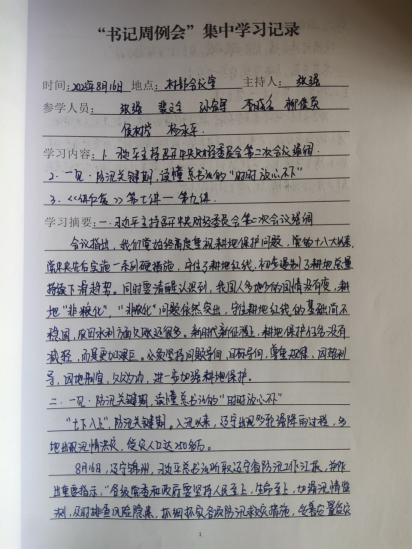 “书记周例会”集中学习记录
时间：2023年8月16日 地点：村部会议室 主持人：张强
参学人员：张强
学习内容：1. 习近平主持召开中央财经委员会第二次会议强调
2. 一见·防汛关键期，读懂总书记的“时时放心不下”
3. 第七讲—第九讲
学习摘要：一、习近平主持召开中央财经委员会第二次会议强调
会议指出，我们党始终高度重视耕地保护问题，党的十八大以来，
党中央先后实施一系列硬措施，守住了耕地红线，初步遏制了耕地总量
持续下滑趋势。同时要清醒认识到，我国人多地少的国情没有变，耕
地“非粮化”、“非农化”问题依然突出，守住耕地红线的基础尚不
稳固，农田水利方面欠账还很多。新时代新征程上，耕地保护任务没有
减轻，而是更加艰巨。必须坚持问题导向、目标导向，尊重规律，因势利
导，因地制宜，久久为功，进一步加强耕地保护。
二、一见·防汛关键期，读懂总书记的“时时放心不下”
“七下八上”，防汛关键期。入汛以来，辽宁出现多轮强降雨过程，多
地出现汛情洪灾，受灾人口达
8月16日，辽宁锦州，习近平总书记听取辽宁省防汛工作汇报，并作
出重要指示，“各级党委和政府要坚持人民至上、生命至上，加强汛情监
测，及时排查风险隐患，抓细抓实各项防汛救灾措施，妥善安置受灾
1